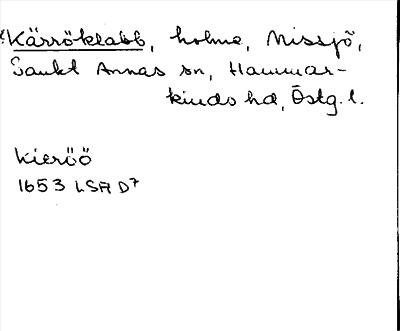 Kärröklabb, holme, Missjö,
Sankt Annas sn, Hammar-
kinds hd, Östg. l.
Kieröö
1653 LSA D7